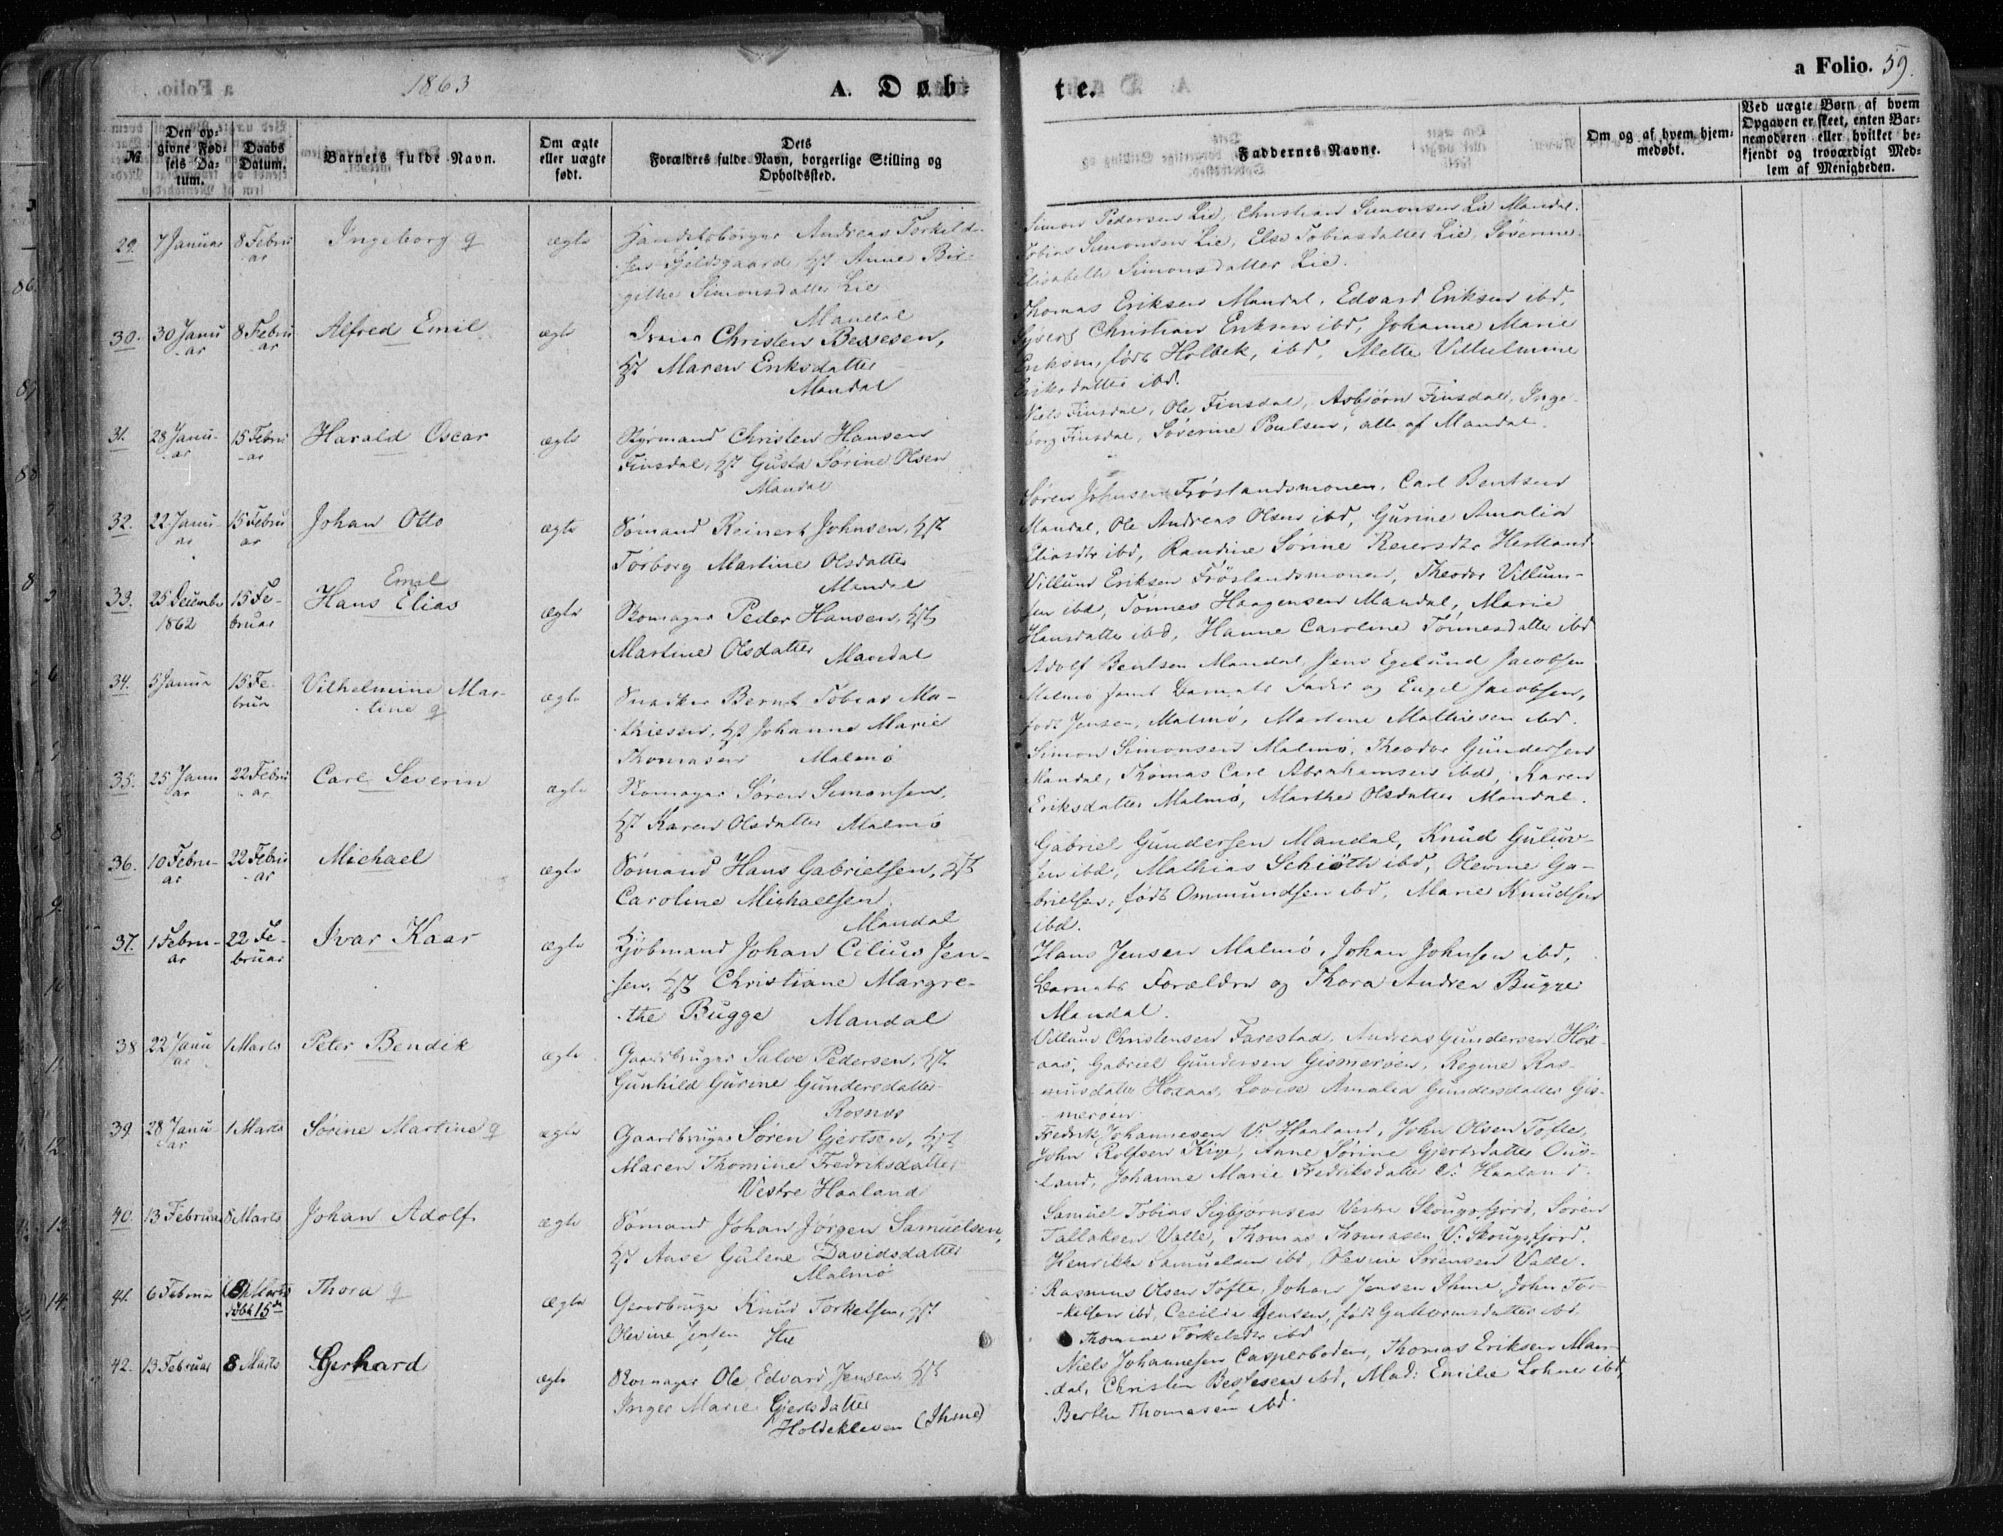 1863
A. Døb-
te.
a Folio. 59.
№
Den op-
givne Fød-
sels Da-
tum.
Daabs
Datum.
Barnets fulde Navn.
Om ægte
eller uægte
født.
Dets
Forældres fulde Navn, borgerlige Stilling og
Opholdssted.
Faddernes Navne.
Om og af hvem hjem-
medøbt.
Ved uægte Børn af hvem
Opgaven er skeet, enten Bar-
nemoderen eller hvilket be-
kjendt og troværdigt Med-
lem af Menigheden.
29. 7 Januar 8 Febru
ar
Ingeborg q
ægte
Handelsborger Andreas Torkild-
sen Fjeldsgaard, Hst Anne Bir-
githe Simonsdatter Lie
Mandal
Simon Pedersen Lie, Christian Simonsen Lie Mandal.
Tobias Simonsen Lie, Else Tobiasdatter Lie, Søverine
Elisabeth Simonsdatter Lie.
30. 30 Janu
ar
8 Febru
ar
Alfred Emil
ægte
Christen Bessesen,
Hst Maren Eriksdatter
Mandal
Thomas Eriksen Mandal, Edvard Eriksen ibd,
Christian Eriksen ibd, Johanne Marie
Eriksen, født Holbek, ibd, Mette Vilhelmine
Eriksdatter ibd.
31. 28 Janu-
ar
15 Febru
ar
Harald Oscar
ægte
Styrmand Christen Hansen
Finsdal, Hst Gusta Sørine Olsen
Mandal
Niels Finsdal, Ole Finsdal, Asbjørn Finsdal, Inge-
borg Finsdal, Søverine Poulsen, alle af Mandal.
32. 22 Janu-
ar
15 Febru
ar
Johan Otto
ægte
Sømand Reinert Johnsen, Hst
Torborg Martine Olsdatter
Mandal
Søren Johnsen Frøslandsmonen, Carl Bentsen
Mandal, Ole Andreas Olsen ibd, Gurine Amalia
Eliasdtr ibd, Randine Sørine Reiersdtr
33. 25 December
1862
15 Fe-
bruar
Emil
Hans Elias
ægte
Skomager Peder Hansen, Hst
Martine Olsdatter Mandal
Villum Eriksen Frøslandsmonen, Theodor Villum-
sen ibd, Tønnes Haagensen Mandal, Marie
Hansdatter ibd, Hanne Caroline Tønnesdatter ibd
34. 5 Januar
15 Fe-
bruar
Vilhelmine Mar-
tine q
ægte
Snedker Bernt Tobias Ma-
thiesen, Hst Johanne Marie
Thomasen Malmø
Adolf Bentsen Mandal, Jens Egelund Jacobsen
Malmø samt Barnets Fader og Engel Jacobsen,
født Jensen, Malmø, Martine Mathisen ibd.
35. 25 Janu
ar
22 Febru
ar
Carl Severin
ægte
Skomager Søren Simonsen,
Hst Karen Olsdatter Malmø
Simon Simonsen Malmø, Theodor Gundersen
Mandal, Thomas Carl Abrahamsen ibd, Karen
Eriksdatter Malmø, Marthe Olsdatter Mandal.
36. 10 Febru-
ar
22 Febru
ar
Michael
ægte
Sømand Hans Gabrielsen, Hst
Caroline Michaelsen
Mandal
Gabriel Gundersen Mandal, Knud Gulov-
sen ibd, Mathias Schiøth ibd, Olevine Ga-
brielsen, født Ommundsen ibd, Marie Knudsen
ibd.
37. 1 Febru-
ar
22 Fe-
bruar
Ivar Kaas
ægte
Kjøbmand Johan Cilius Jen-
sen, Hst Christiane Margre-
the Bugge Mandal
Hans Jensen Malmø, Johan Johnsen ibd,
Barnets Forældre og Thora Andrea Bugge
Mandal.
38 22 Janu
ar
1 Marts
Peter Bendik
ægte
Gaardbruger Salve Pedersen, Hst
Gunhild Gurine Gundersdatter
Rosnes
Villum Christensen Farestad, Andreas Gundersen Hox-
aas, Gabriel Gundersen Gismerøen, Regine Ras-
musdatter Hoxaas, Lovise Amalia Gundersdatter Gis-
merøen
39. 28 Janu
ar
1 Marts
Sørine Martine q
ægte
Gaardbruger Søren Gjertsen, Hst
Maren Thomine Fredriksdatter
Vestre Haaland
Fredrik Johannesen V. Haaland, John Olsen Tofte,
John Rolfsen Kige, Anne Sørine Gjertsdatter Ous-
land, Johanne Marie Fredriksdatter V. Haaland.
40. 13 Februar 8 Marts
Johan Adolf
ægte
Sømand Johan Jørgen Samuelsen,
Hst Aase Gulene Davidsdatter
Malmø
Samuel Tobias Sigbjørnsen Vestre Skougsfjord, Søren
Tallaksen Valle, Thomas Thomasen V. Skougsfjord.
Henrikke Samuelsen ibd, Olevine Sørensen Valle.
41. 6 Februar 8 Marts
døbt 15de
Thora q
ægte
Gaardbruger Knud Torkelsen, Hst
Olevine Jensen
Rasmus Olsen Tofte, Johan Jensen Ihme, John Tor-
kelsen ibd, Cecilia Jensen, født Guttormsdatter ibd.
Thomine Torkelsdtr ibd
42. 13 Februar 8 Marts
Gerhard
ægte
Skomager Ole Edvard Jensen, Hst
Inger Marie Gjertsdatter
Holdekleven (Ihme)
Niels Johannesen Casperboden, Thomas Eriksen Man-
dal, Christen Bessesen ibd, Mad: Emilie Lohne ibd,
Berthe Thomasen ibd.